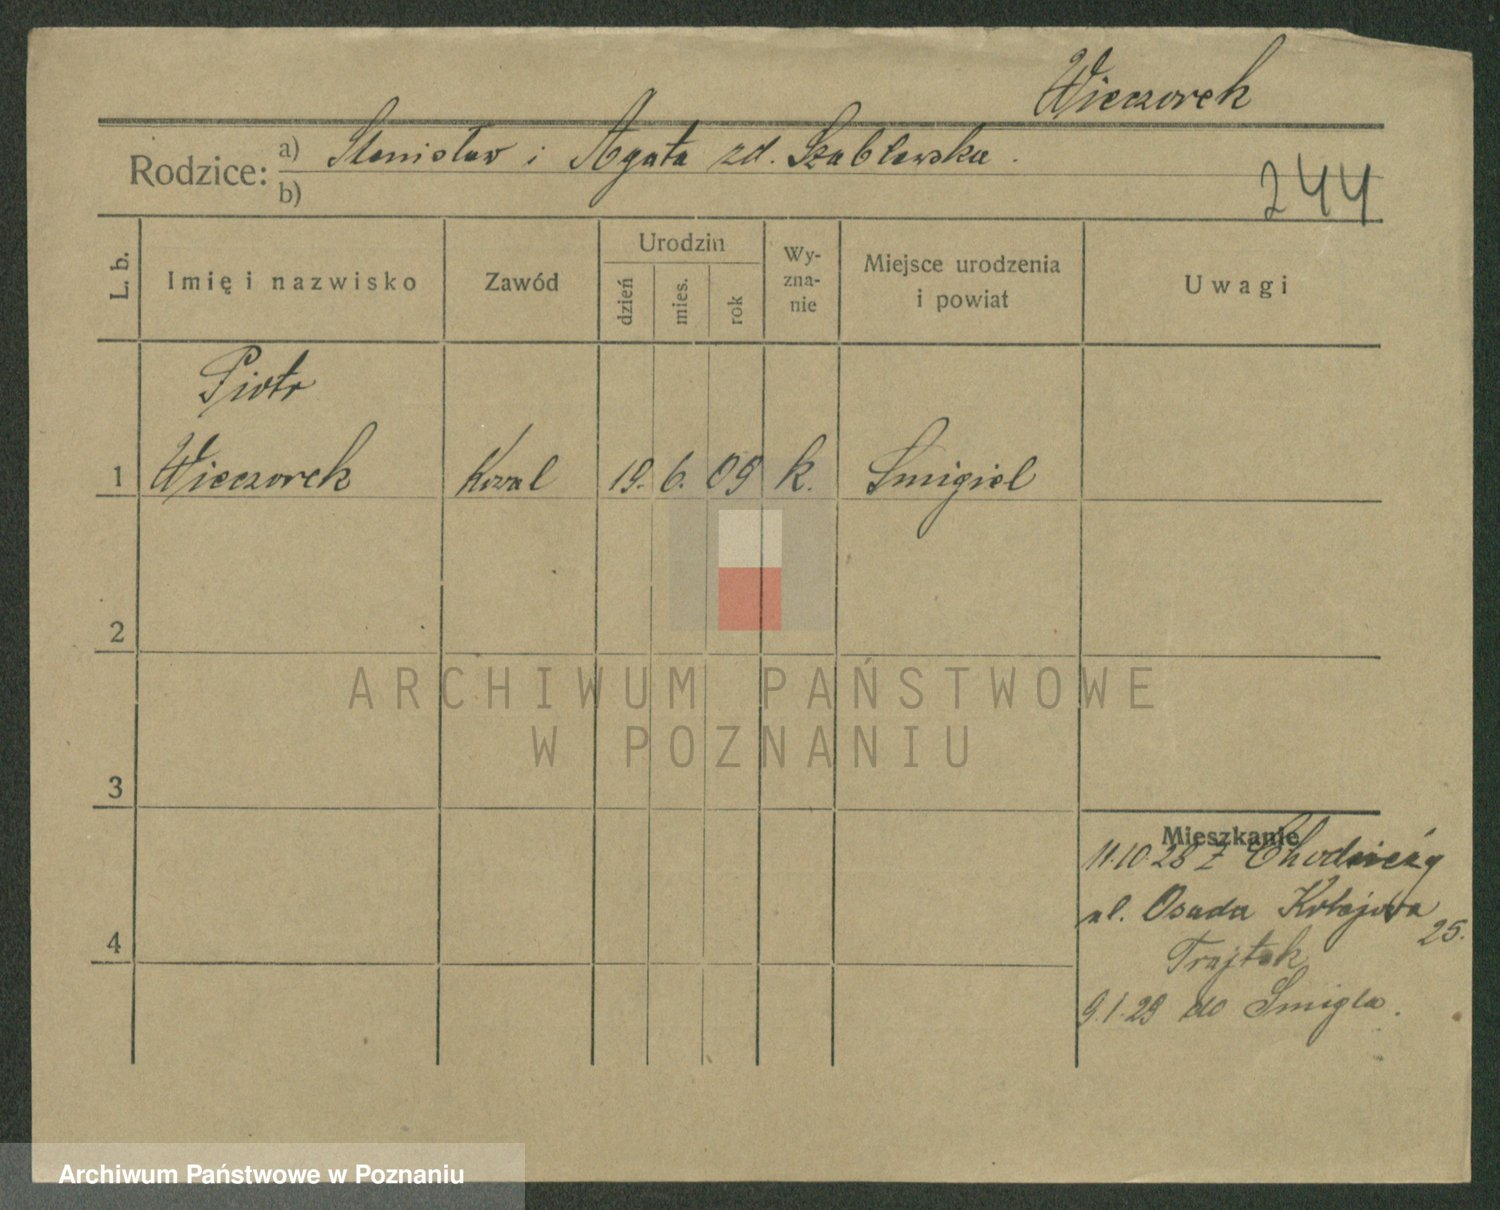 Wieczorek
Rodzice: a) Stanisław i Agata zd. Szablewska.
b)
244
L. b.
Imię i nazwisko
Zawód
Urodzin
dzień
mies.
rok
Wy-
zna-
nie
Miejsce urodzenia
i powiat
Uwagi
Piotr
1 Wieczorek Kowal 19. 6. 09 k. Śmigiel
2
3
4
Mieszkanie
11.10.28 z Chodzieży
ul. Osada Kolejowa
25.
9.1.29 do Śmigla.
ARCHIWUM PAŃSTWOWE
W POZNANIU
Archiwum Państwowe w Poznaniu